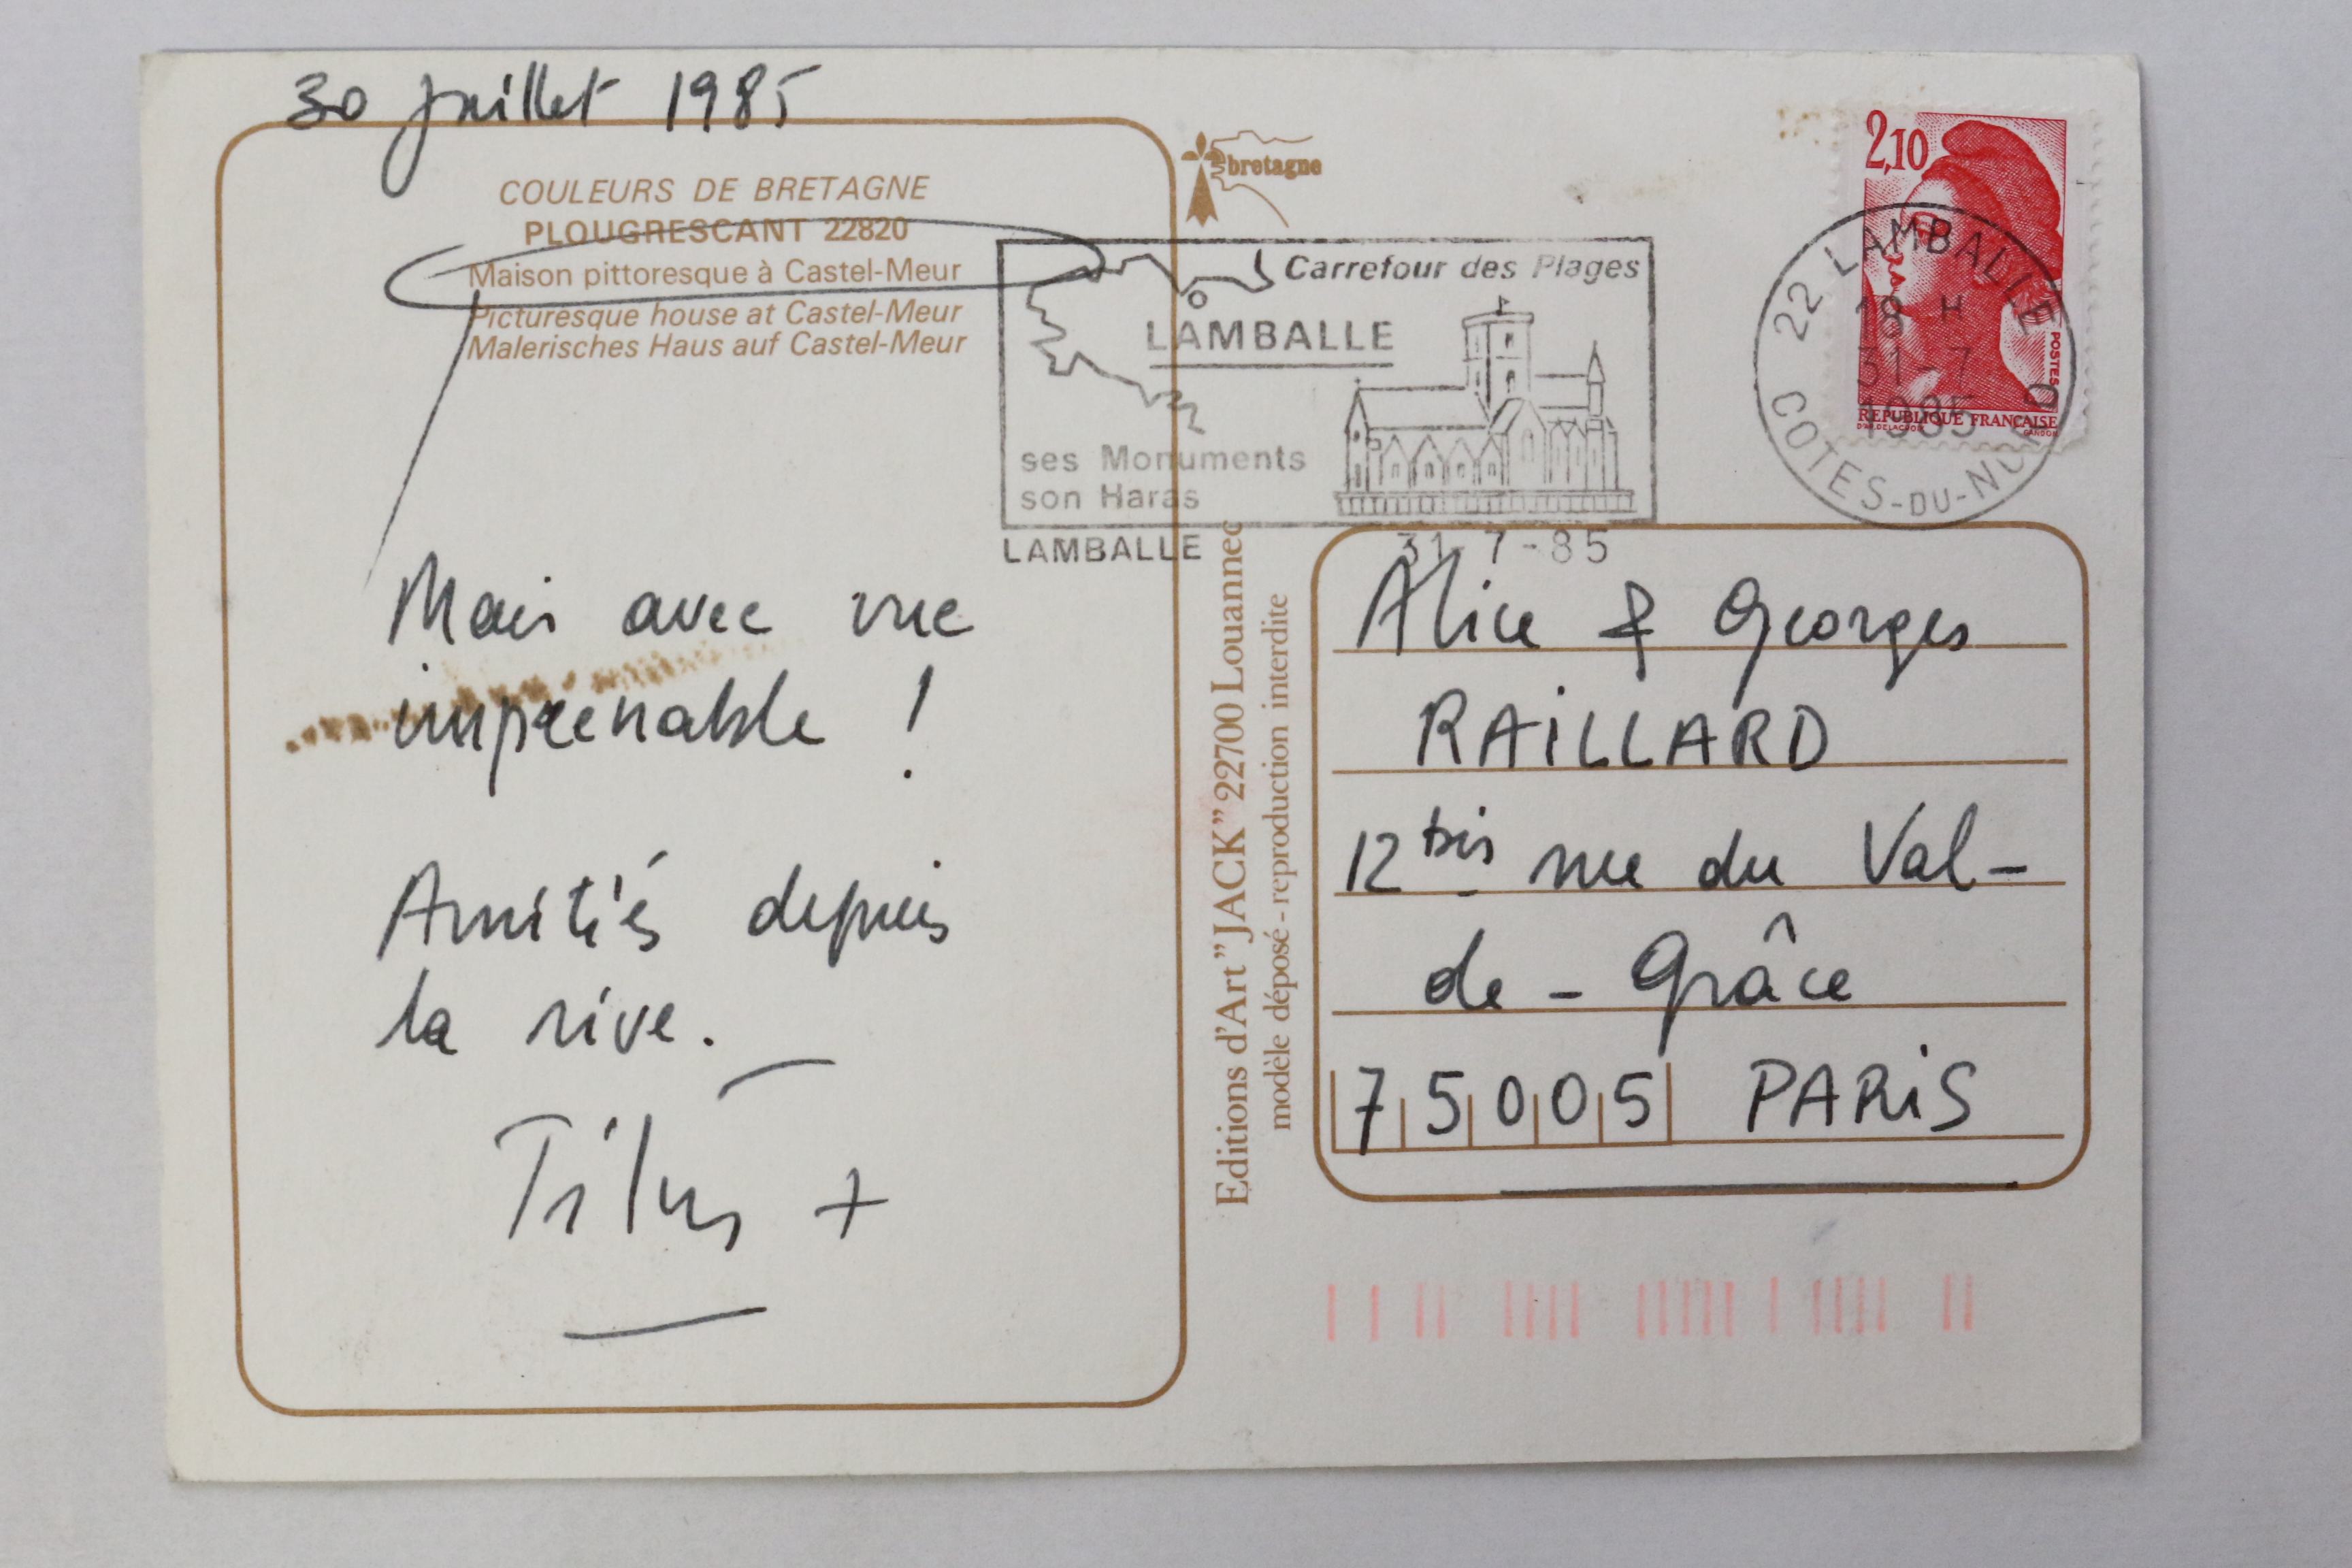 30 juillet 1985
COULEURS DE BRETAGNE
PLOUGRESCANT 22820
Maison pittoresque à Castel-Meur
Picturesque house at Castel-Meur
Malerisches Haus auf Castel-Meur
Mais avec vue
imprenable !
Amitiés depuis
la rive.
bretagne
Carrefour des Plages
LAMBALLE
ses Monuments
son Haras
LAMBALLE 31-7-85
2,10
POSTES
REPUBLIQUE FRANÇAISE
D'AP. DELACROIX
GANDON
22 LAMBALLE
18 H
31-7
1985
COTES-DU-NORD
Editions d'Art "JACK" 22700 Louannec
modèle déposé - reproduction interdite
Alice & Georges
RAILLARD
12 bis rue du Val-
de-Grâce
75005 PARIS